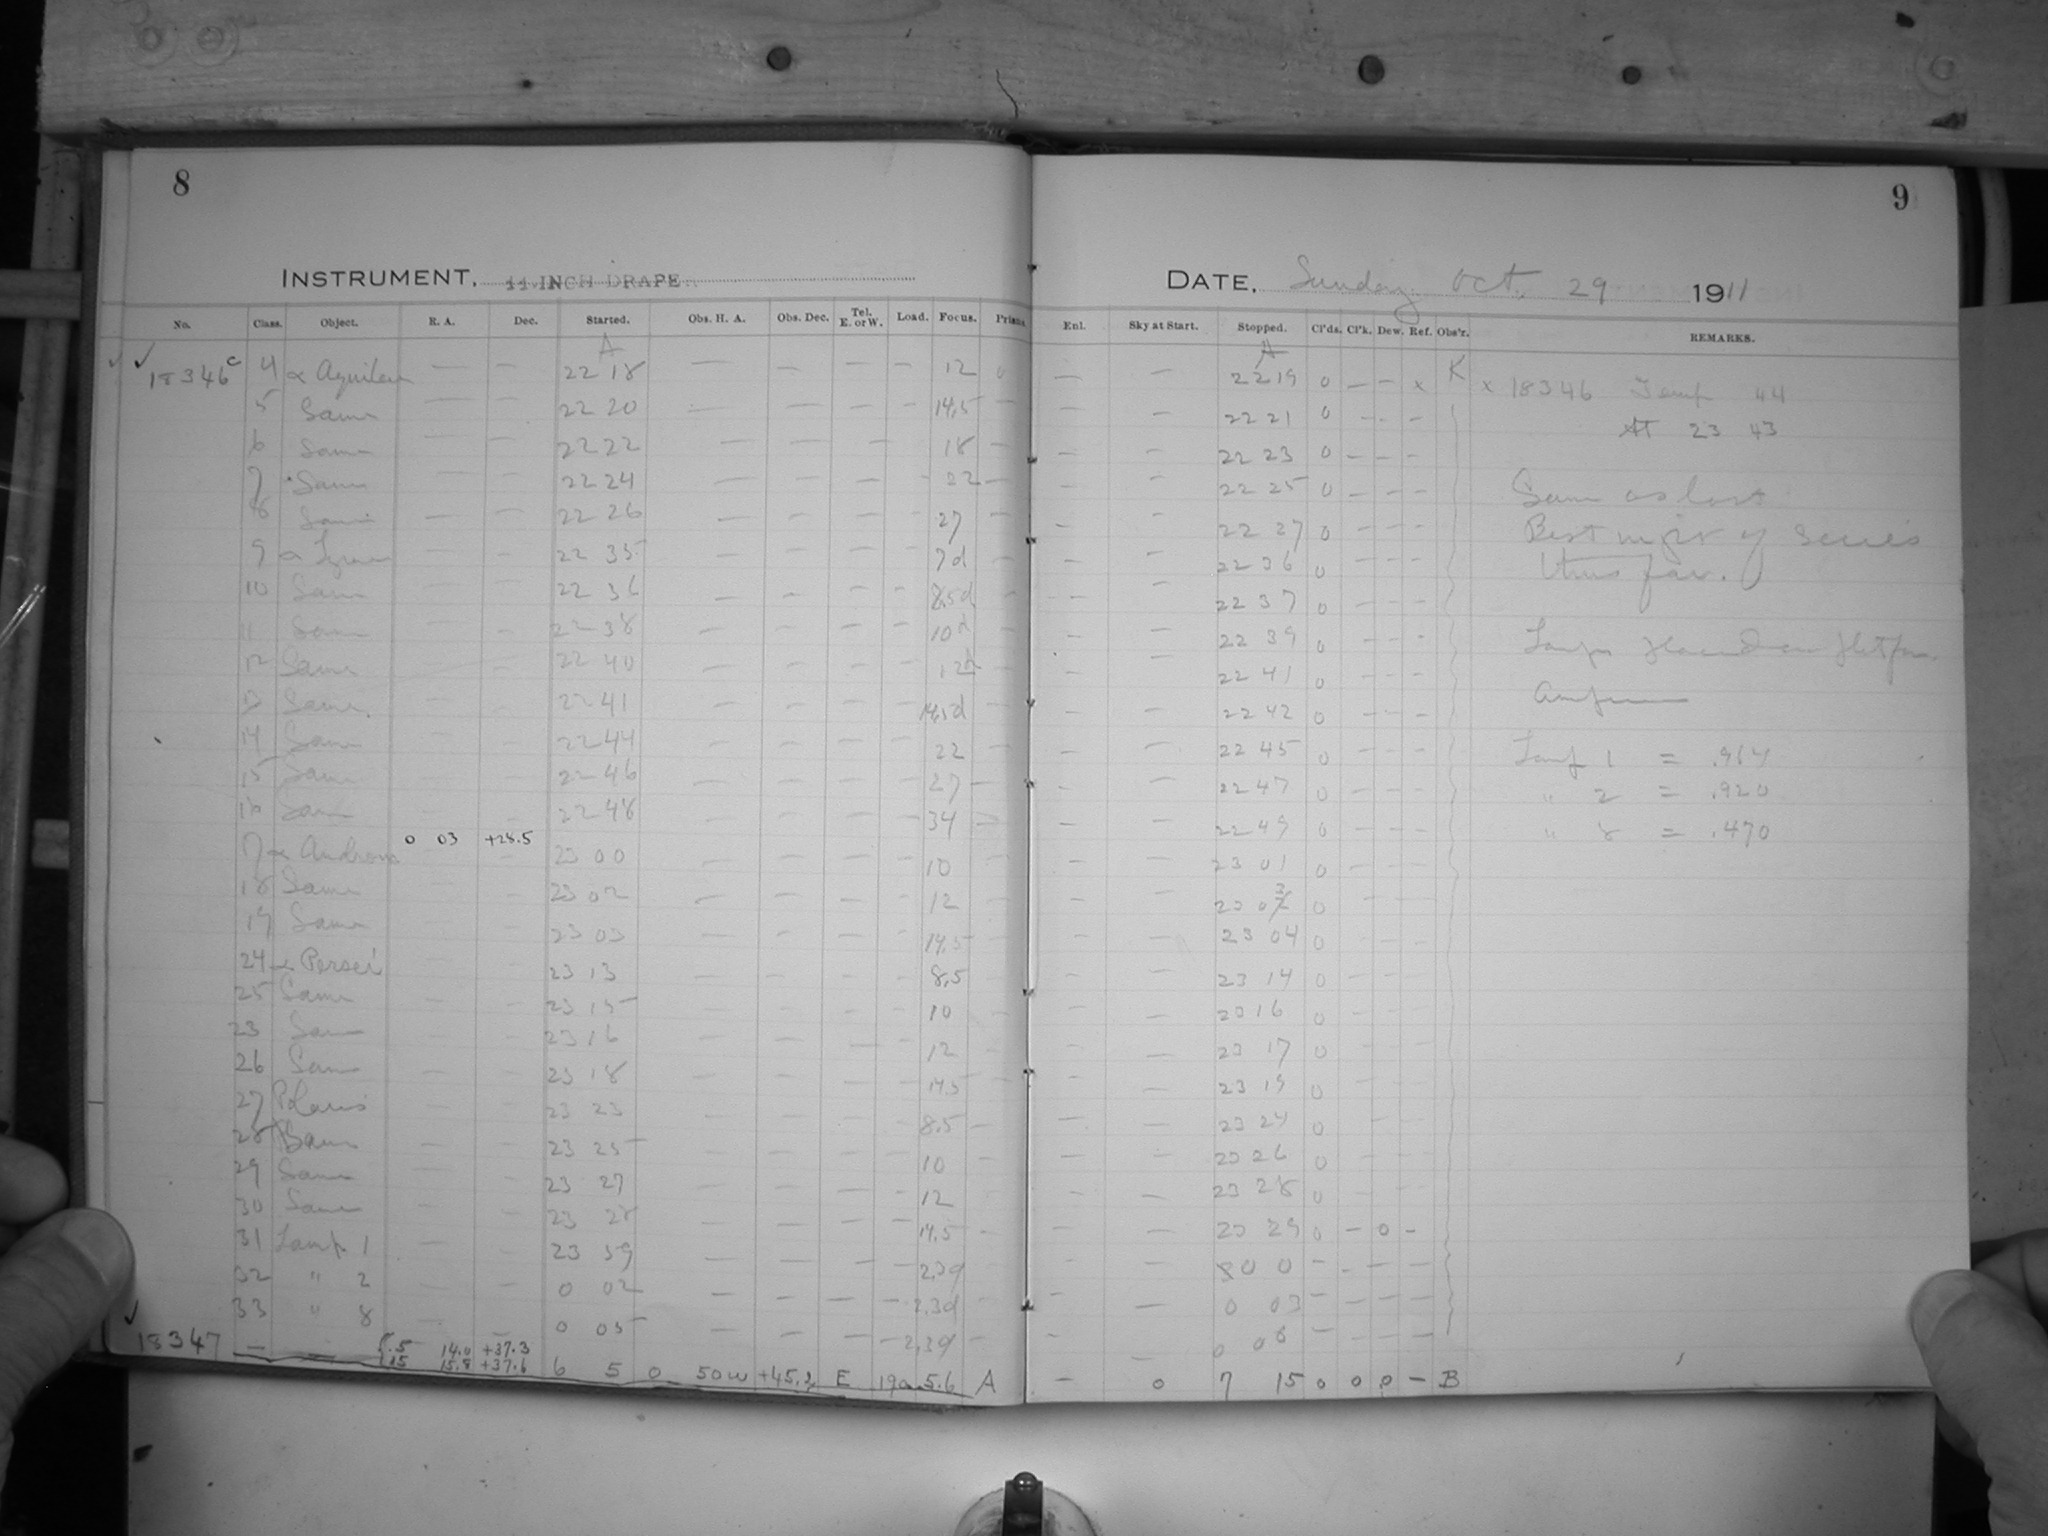 8
INSTRUMENT. 11-INCH DRAPE.
No. Class. Object. R. A. Dec. Started. Obs. H. A. Obs. Dec. Tel. E. or W. Load. Focus. Prisms
A
18346 c 4 α Aquilae — — 22 18 — — — — 12 0
5 Same — — 22 20 — — — — 14.5 —
6 Same — — 22 22 — — — — 18 —
7 Same — — 22 24 — — — — 22 —
8 Same — — 22 26 — — — — 27 —
9 α Lyrae — — 22 35 — — — — 7d —
10 Same — — 22 36 — — — — 8.5d —
11 Same — — 22 38 — — — — 10d —
12 Same — — 22 40 — — — — 12d
13 Same — — 22 41 — — — — 14.5d
14 Same — — 22 44 — — — — 22 —
15 Same — — 22 46 — — — — 27 —
16 Same — — 22 48 — — — — 34 —
17 α Androm 0 03 +28.5 23 00 — — — — 10
18 Same — — 23 02 — — — — 12 —
19 Same — — 23 03 — — — — 14.5 —
24 α Persei — — 23 13 — — — — 8.5
25 Same — — 23 15 — — — — 10 —
23 Same — — 23 16 — — — — 12 —
26 Same — — 23 18 — — — — 14.5 —
27 Polaris — — 23 23 — — — — 8.5 —
28 Same — — 23 25 — — — — 10 —
29 Same — — 23 27 — — — — 12 —
30 Same — — 23 28 — — — — 14.5 —
31 Lamp 1 — — 23 59 — — — — 2.3d —
32 " 2 — — 0 02 — — — — 2.3d —
33 " 8 — — 0 05 — — — — 2.3d —
18347 — 5.5 14.0 +37.3
15.8 +37.6 6 5 0 50w +45.2 E 19a 5.6 A
9
DATE. Sunday Oct. 29 1911
Enl. Sky at Start. Stopped. Cl'ds. Cl'k. Dew. Ref. Obs'r. REMARKS.
A
— — 22 19 0 — — x K x 18346 Temp 44
— — 22 21 0 — — — At 23 43
— — 22 23 0 — — —
— — 22 25 0 — — — Same as last
— — 22 27 0 — — — Best night of series
— — 22 36 0 — — — thus far.
— — 22 37 0 — — —
— — 22 39 0 — — — Lamps
— — 22 41 0 — — —
— — 22 42 0 — — —
— — 22 45 0 — — — Lamp 1 = .964
— — 22 47 0 — — — " 2 = .920
— — 22 49 0 — — — " 8 = .470
— — 23 01 0 — — —
— — 23 03 0 — — —
— — 23 04 0 — — —
— — 23 14 0 — — —
— — 23 16 0 — — —
— — 23 17 0 — — —
— — 23 19 0 — — —
— — 23 24 0 — — —
— — 23 26 0 — — —
— — 23 28 0 — — —
— — 23 29 0 — 0 —
0 0 — — — —
— — 0 03 — — — —
— — 0 06 —
— 0 7 15 0 0 0 — B